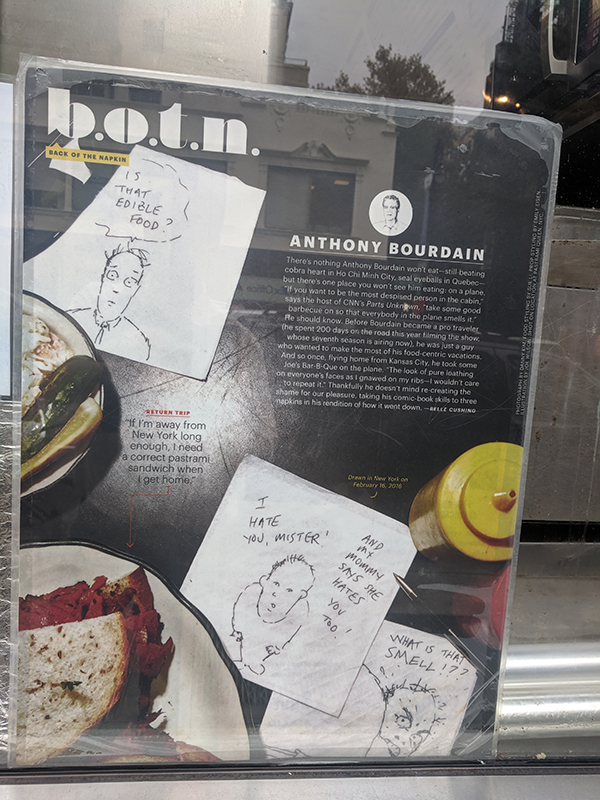 b.o.t.n.
BACK OF THE NAPKIN
IS
THAT
EDIBLE
FOOD?
ANTHONY BOURDAIN
There's nothing Anthony Bourdain won't eat—still-beating
cobra heart in Ho Chi Minh City, seal eyeballs in Quebec—
but there's one place you won't see him eating: on a plane.
"If you want to be the most despised person in the cabin,"
says the host of CNN's Parts Unknown, "take some good
barbecue on so that everybody in the plane smells it."
He should know. Before Bourdain became a pro traveler
(he spent 200 days on the road this year filming the show,
whose seventh season is airing now), he was just a guy
who wanted to make the most of his food-centric vacations.
And so once, flying home from Kansas City, he took some
Joe's Bar-B-Que on the plane. "The look of pure loathing
on everyone's faces as I gnawed on my ribs—I wouldn't care
to repeat it." Thankfully he doesn't mind re-creating the
shame for our pleasure, taking his comic-book skills to three
napkins in his rendition of how it went down. —BELLE CUSHING
RETURN TRIP
"If I'm away from
New York long
enough, I need
a correct pastrami
sandwich when
I get home."
Drawn in New York on
February 16, 2016
I
HATE
YOU, MISTER!
AND
MY
MOMMY
SAYS SHE
HATES
YOU
TOO!
WHAT IS THAT
SMELL!??